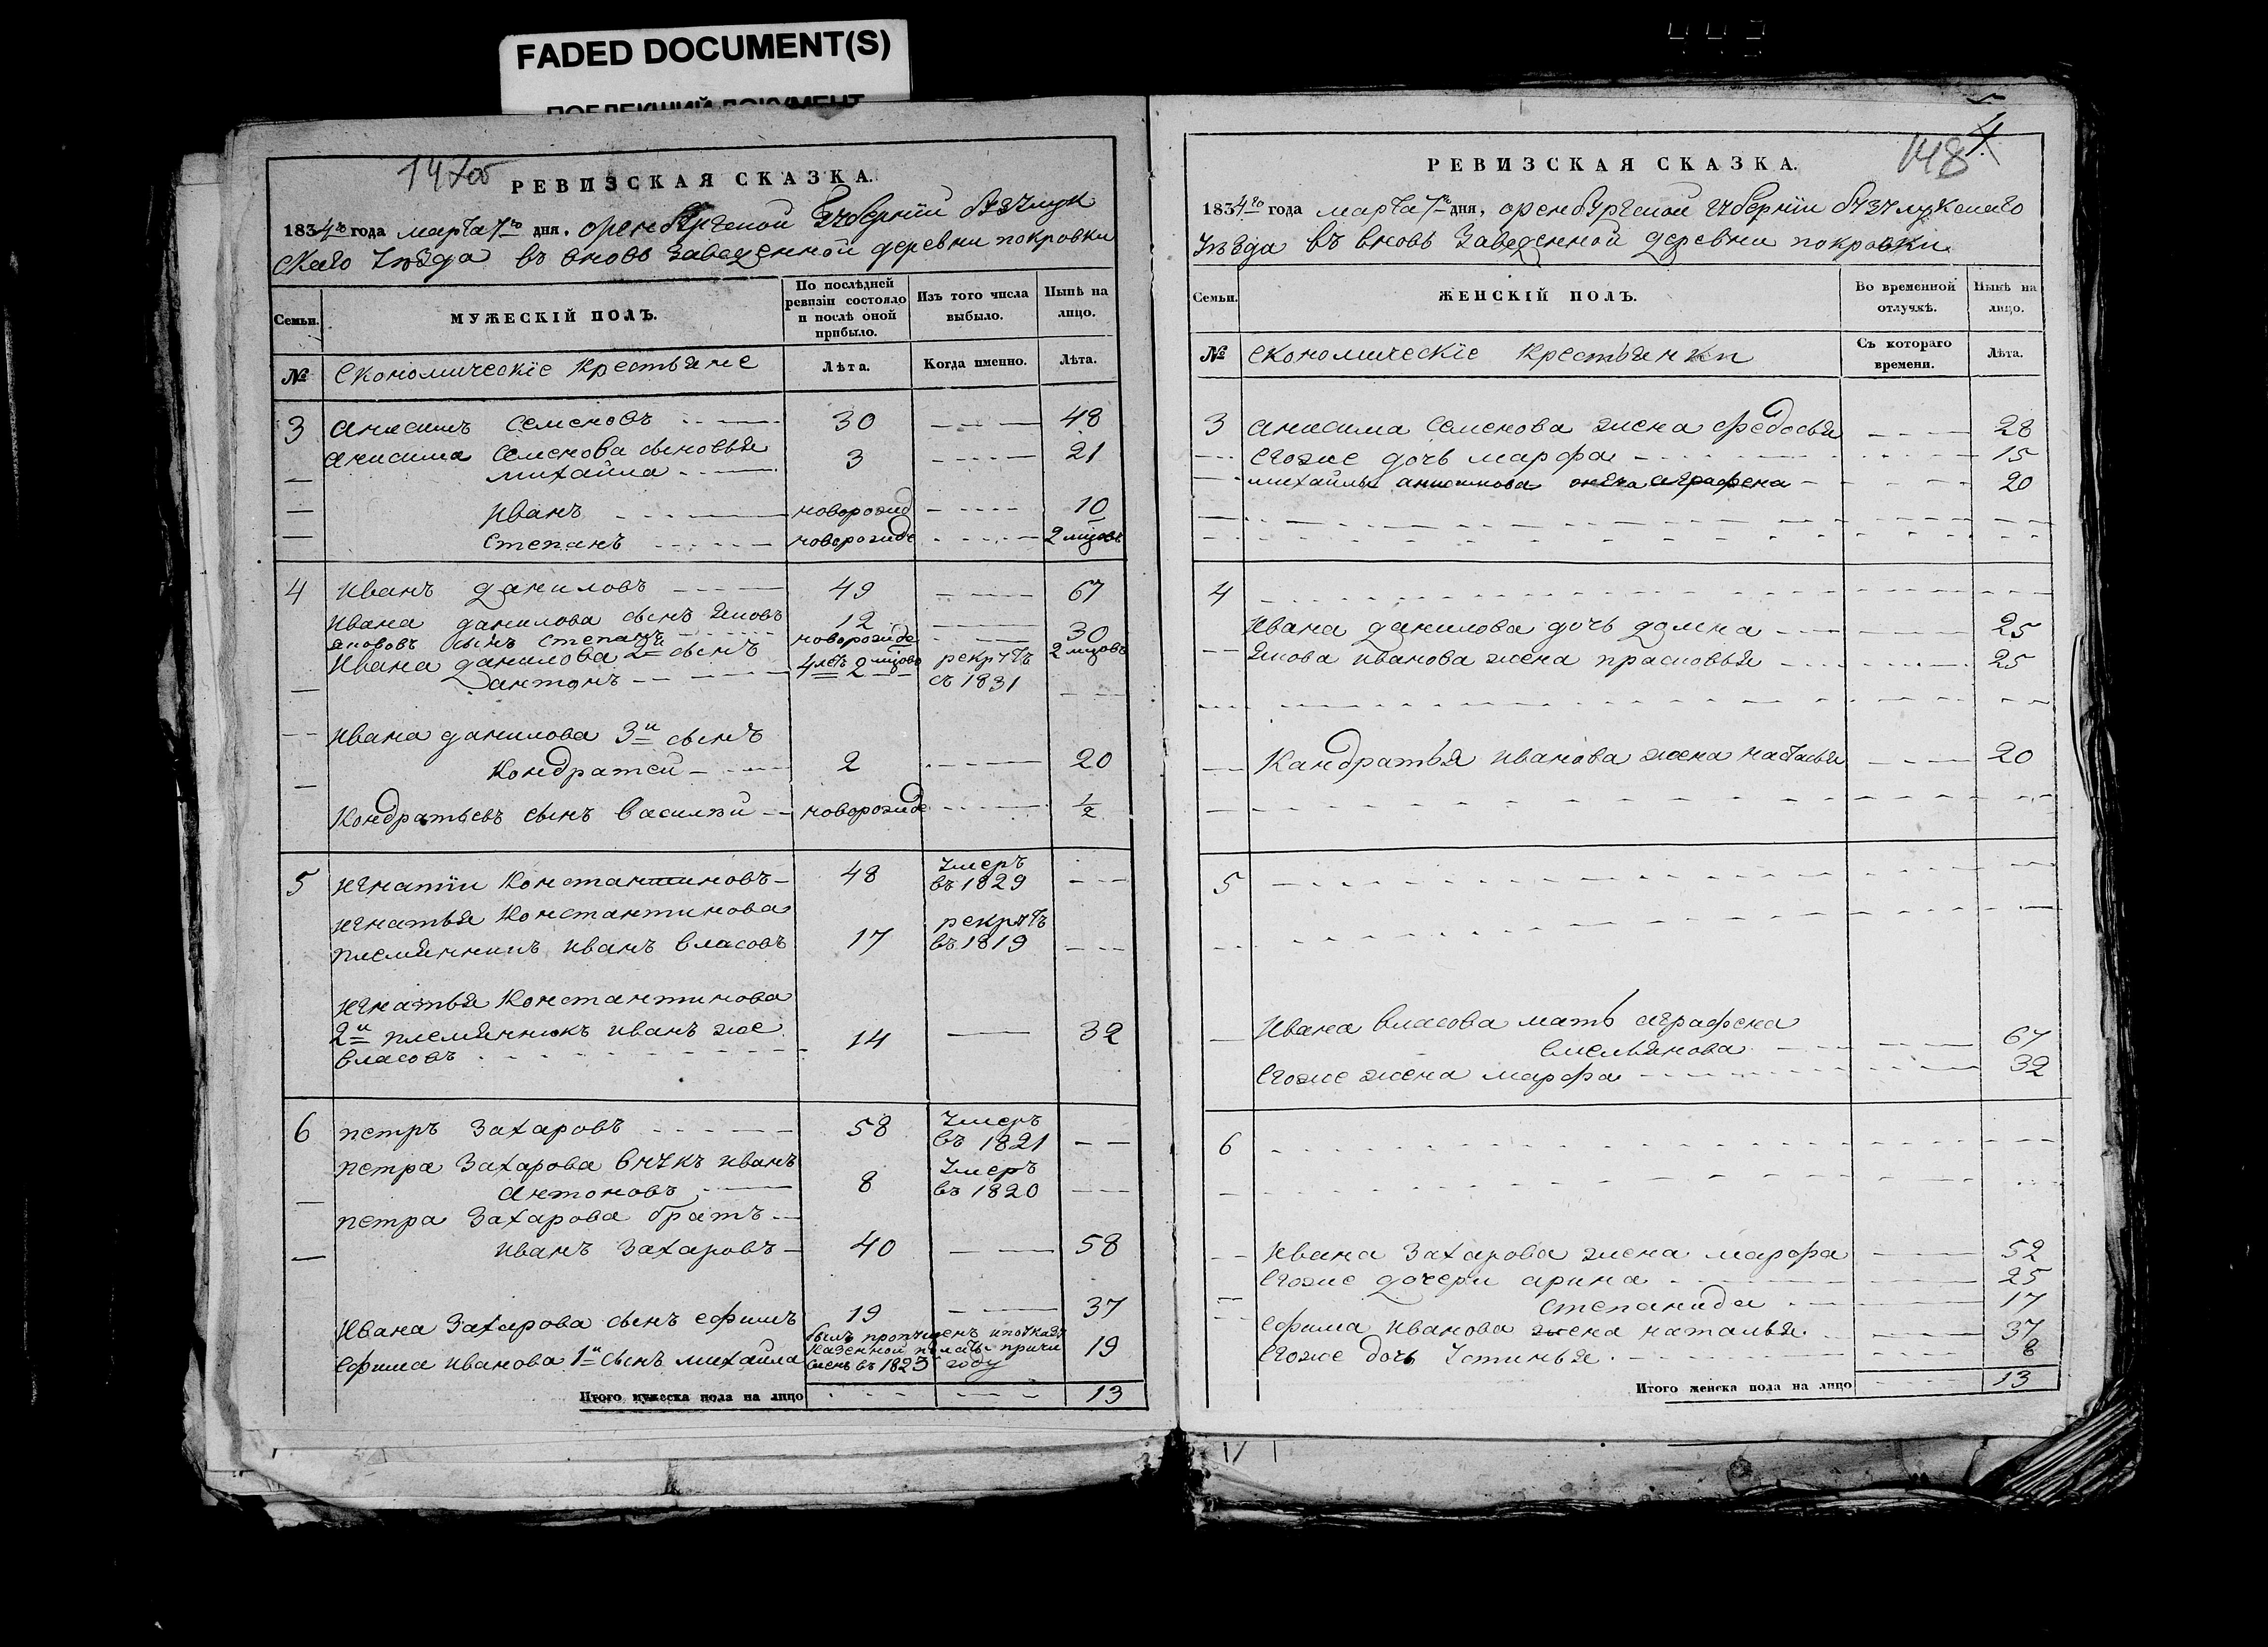 FADED DOCUMENT(S)
147об
РЕВИЗСКАЯ СКАЗКА.
1834го года марта 7го дня. оренбургской губернїи бузулук
скаго уѣзда въ вновь заведенной деревни покровки
Семьи.
МУЖЕСКІЙ ПОЛЪ.
По послѣдней ревизіи состояло и послѣ оной прибыло.
Изъ того числа выбыло.
Нынѣ на лицо.
№
Економическїе крестьяне
Лѣта.
Когда именно.
Лѣта.
3 анисимъ семеновъ 30 48
анисима семенова сыновья
михайла 3 21
иванъ новорожд 10
степанъ новорожде 2 мцовъ
4 иванъ даниловъ 49 67
ивана данилова сынъ яковъ 12 30
яковъ сынъ степанъ новорожде 2 мцовъ
ивана данилова 2й сынъ 4 летъ 2 мцовъ рекрутъ
антонъ съ 1831
ивана данилова 3й сынъ
кондратей 2 20
кондратьевъ сынъ василїй новорожде 1/2
5 игнатїи константиновъ 48 умеръ въ 1829
игнатья константинова
племянникъ иванъ власовъ 17 рекрутъ въ 1819
игнатья константинова
2й племянникъ иванъ же 14 32
власовъ
6 петръ захаровъ 58 умеръ въ 1821
петра захарова внукъ иванъ
антоновъ 8 умеръ въ 1820
петра захарова братъ
иванъ захаровъ 40 58
ивана захарова сынъ ефимъ 19 37
ефима иванова 1й сынъ михайла 19
былъ пропущенъ ипоуказу
казенной палаты причи
сленъ въ 1823 году
Итого мужеска пола на лицо 13
148
РЕВИЗСКАЯ СКАЗКА.
1834го года марта 7го дня, оренбургской губернїи бузулукскаго
уѣзда въ вновь заведенной деревни покровки
Семьи.
ЖЕНСКІЙ ПОЛЪ.
Во временной отлучкѣ.
Нынѣ на лицо.
№
економическїе крестьянки
Съ котораго времени.
Лѣта.
3 анисима семенова жена федосья 28
егоже дочь марфа 15
михайлы анисимова жена аграфена 20
4
ивана данилова дочь домна 25
якова иванова жена прасковья 25
кандратья иванова жена настасья 20
5
ивана власова мать аграфена
емельянова 67
егоже жена марфа 32
6
ивана захарова жена марфа 52
егоже дочери арина 25
степанида 17
ефима иванова жена наталья 37
егоже дочь устинья 8
Итого женска пола на лицо 13